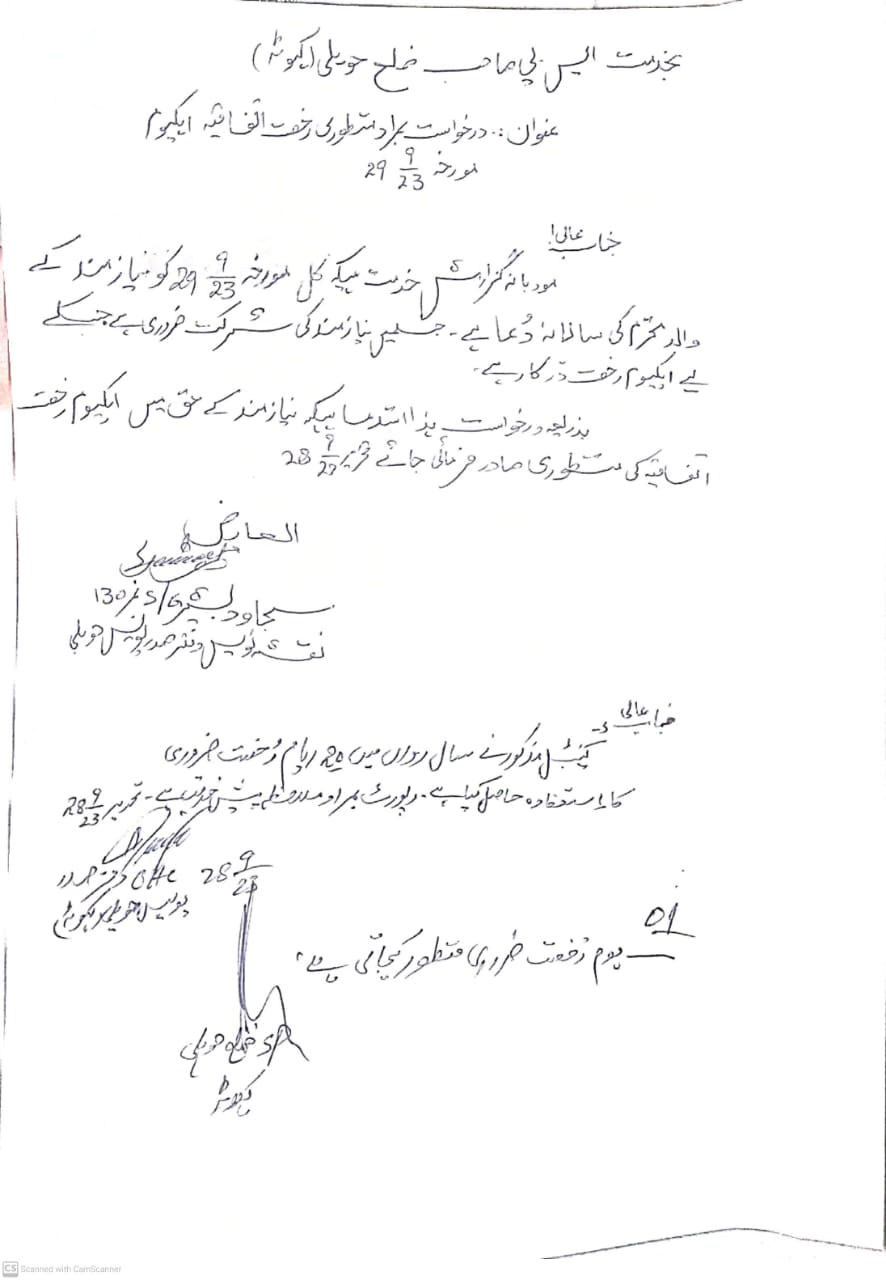 بخدمت ایس پی صاحب ضلع حویلی (کہوٹہ)
عنوان:. درخواست بمراد منظوری رخصت اتفاقیہ ایکیوم
مورخہ 29 9/23
جناب عالی!
مودبانہ گزارش خدمت ہیکہ کل مورخہ 29 9/23 کو نیازمند کے
والد محترم کی سالانہ دُعا ہے۔ جسمیں نیازمند کی شرکت ضروری ہے جسکے
لیے ایکیوم رخصت درکار ہے۔
بذریعہ درخواست ہذا استدعا ہیکہ نیازمند کے حق میں ایکیوم رخصت
اتفاقیہ کی منظوری صادر فرمائی جائے تحریر 28 9/23
العارض
سجاول بشیر G/S نمبر 130
نقشہ نویس دفتر صدر پولیس حویلی
جناب عالی
کنسٹیبل مذکور نے سال رواں میں 20 ایام رُخصت ضروری
کا استفادہ حاصل کیا ہے۔ رپورٹ بمراد ملاحظہ پیش خدمت ہے۔ تحریر 28 9/23
OHC دفتر صدر
پولیس حویلی کہوٹہ
28 9/23
01
یوم رُخصت ضروری منظور کیجاتی ہے۔
SP ضلع حویلی
کہوٹہ
CS Scanned with CamScanner